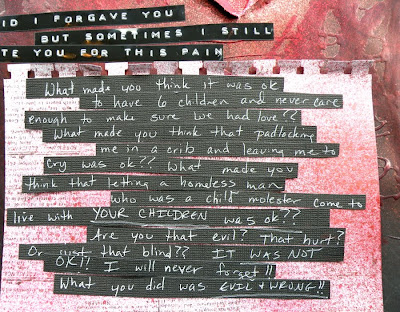 ID I FORGAVE YOU
BUT SOMETIMES I STILL
TE YOU FOR THIS PAIN
What made you think it was ok
to have 6 children and never care
enough to make sure we had love??
What made you think that padlocking
me in a crib and leaving me to
cry was ok?? What made you
think that letting a homeless man
who was a child molester come to
live with YOUR CHILDREN was ok??
Are you that evil? That hurt?
Or just that blind?? IT WAS NOT
OK!! I will never forget!!
What you did was EVIL & WRONG!!